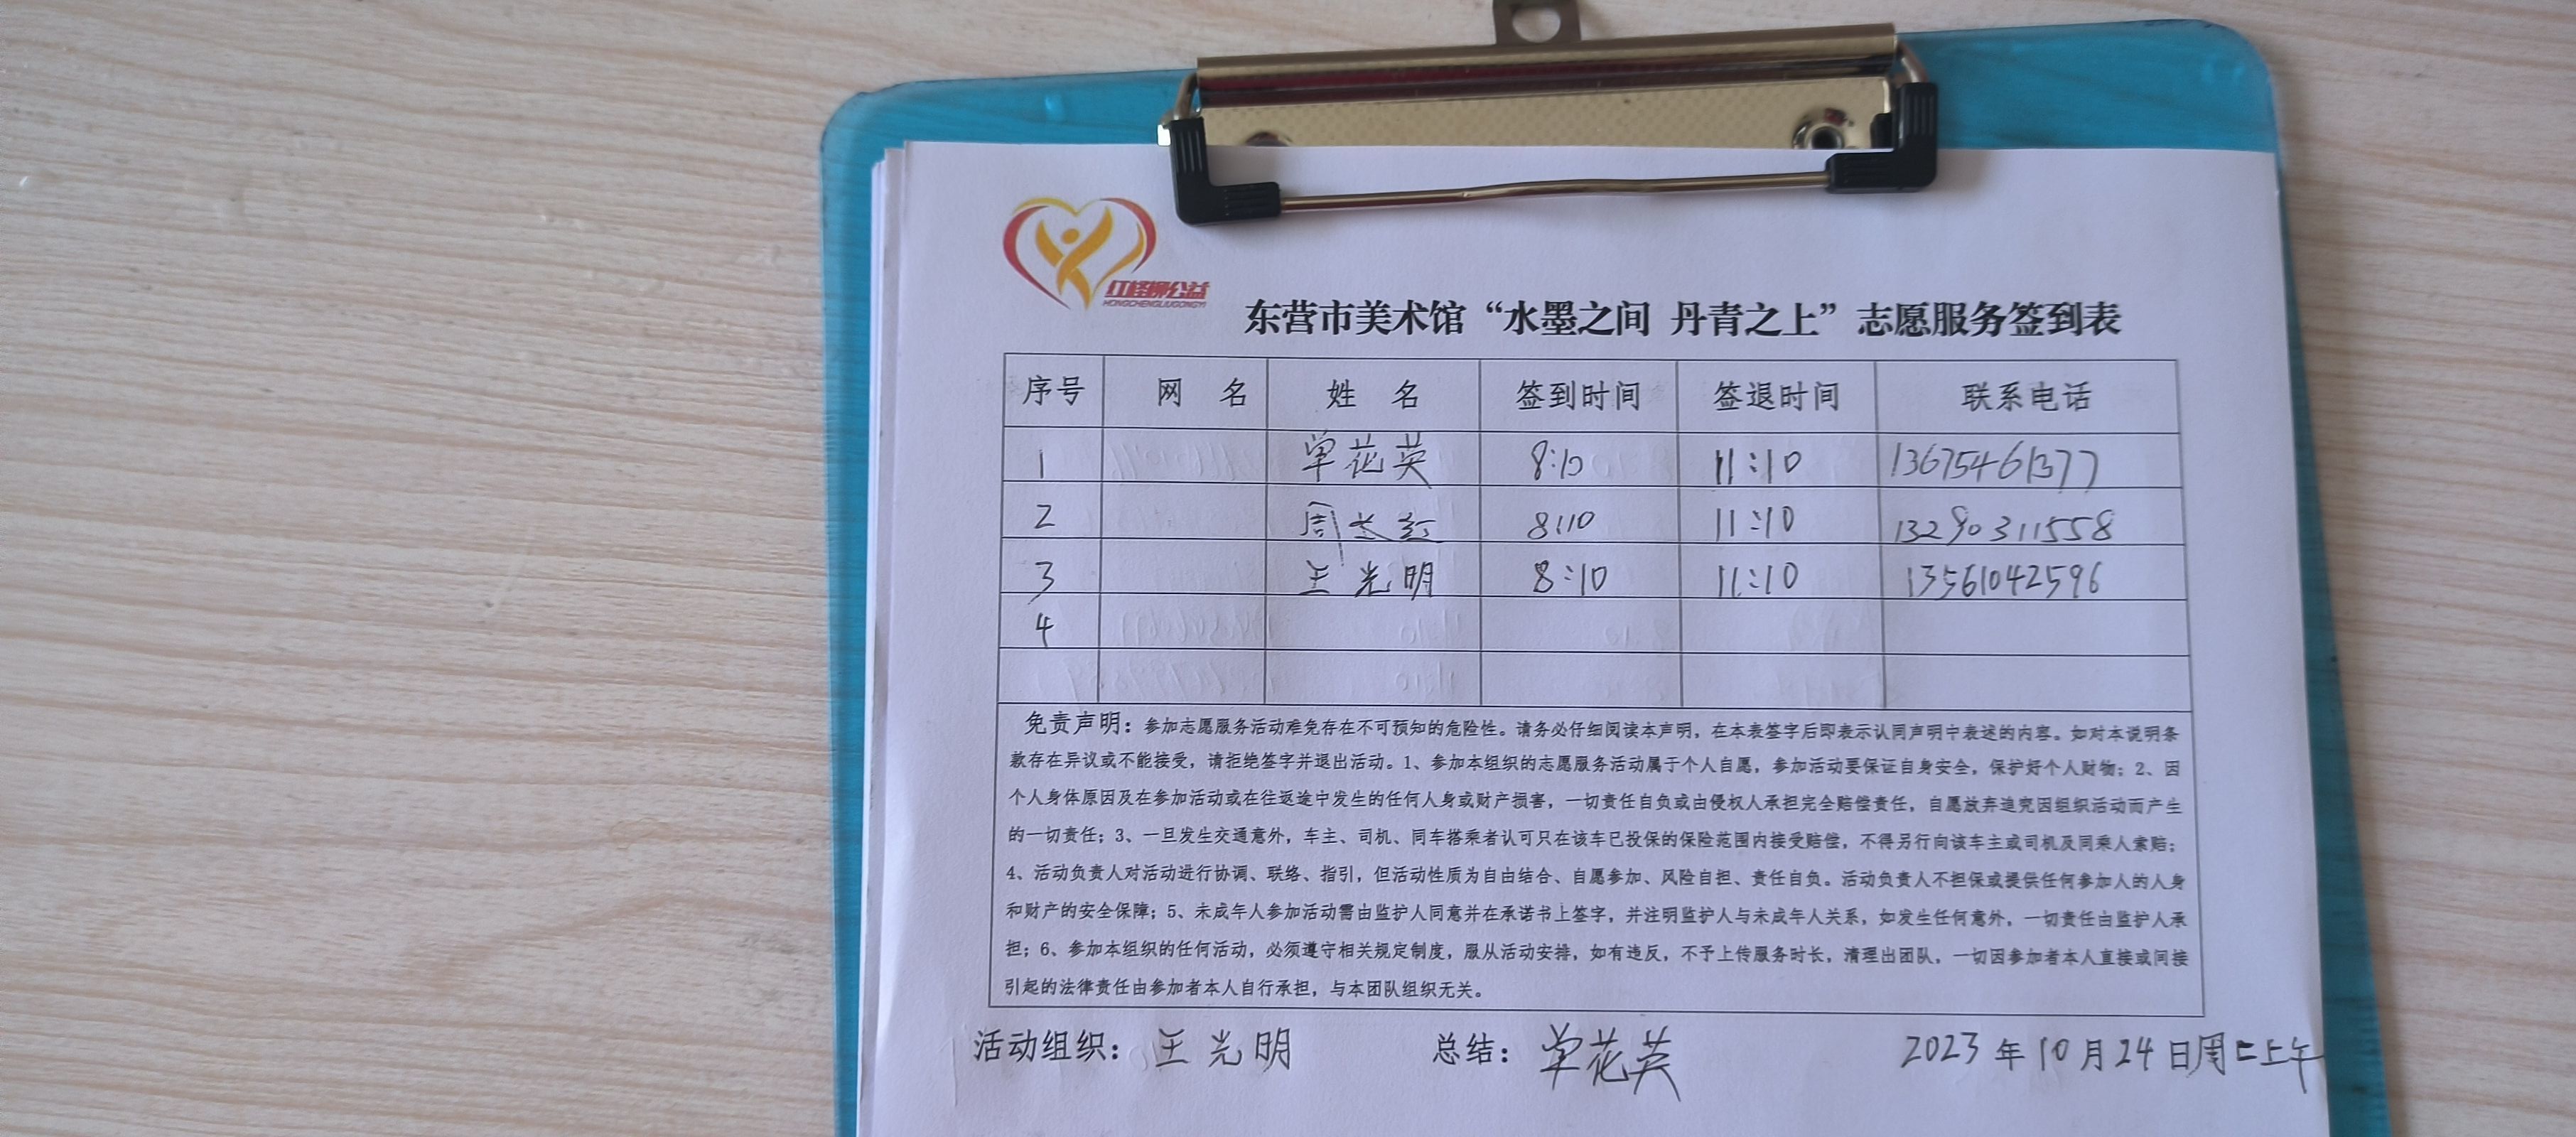 红柽柳公益
HONGCHENGLIUGONGYI
东营市美术馆“水墨之间 丹青之上”志愿服务签到表
序号 网 名 姓 名 签到时间 签退时间 联系电话
1 单花英 8:10 11:10 13675461377
2 周长红 8:10 11:10 13290311558
3 王光明 8:10 11:10 13561042596
4
免责声明：参加志愿服务活动难免存在不可预知的危险性。请务必仔细阅读本声明，在本表签字后即表示认同声明中表述的内容。如对本说明条
款存在异议或不能接受，请拒绝签字并退出活动。1、参加本组织的志愿服务活动属于个人自愿，参加活动要保证自身安全，保护好个人财物；2、因
个人身体原因及在参加活动或在往返途中发生的任何人身或财产损害，一切责任自负或由侵权人承担完全赔偿责任，自愿放弃追究因组织活动而产生
的一切责任；3、一旦发生交通意外，车主、司机、同车搭乘者认可只在该车已投保的保险范围内接受赔偿，不得另行向该车主或司机及同乘人索赔；
4、活动负责人对活动进行协调、联络、指引，但活动性质为自由结合、自愿参加、风险自担、责任自负。活动负责人不担保或提供任何参加人的人身
和财产的安全保障；5、未成年人参加活动需由监护人同意并在承诺书上签字，并注明监护人与未成年人关系，如发生任何意外，一切责任由监护人承
担；6、参加本组织的任何活动，必须遵守相关规定制度，服从活动安排，如有违反，不予上传服务时长，清理出团队，一切因参加者本人直接或间接
引起的法律责任由参加者本人自行承担，与本团队组织无关。
活动组织：王光明 总结：单花英 2023年10月24日周二上午